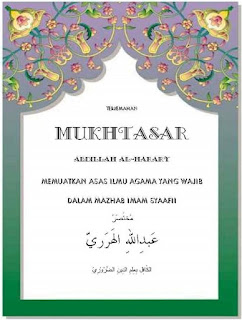 TERJEMAHAN
MUKHTASAR
ABDILLAH AL-HARARY
MEMUATKAN ASAS ILMU AGAMA YANG WAJIB
DALAM MAZHAB IMAM SYAAFII
مُخْتَصَر
عَبدِاللهِ الهَرَرِيّ
الكَافِل بِعِلمِ الدِين الضَّرُوْرِيّ